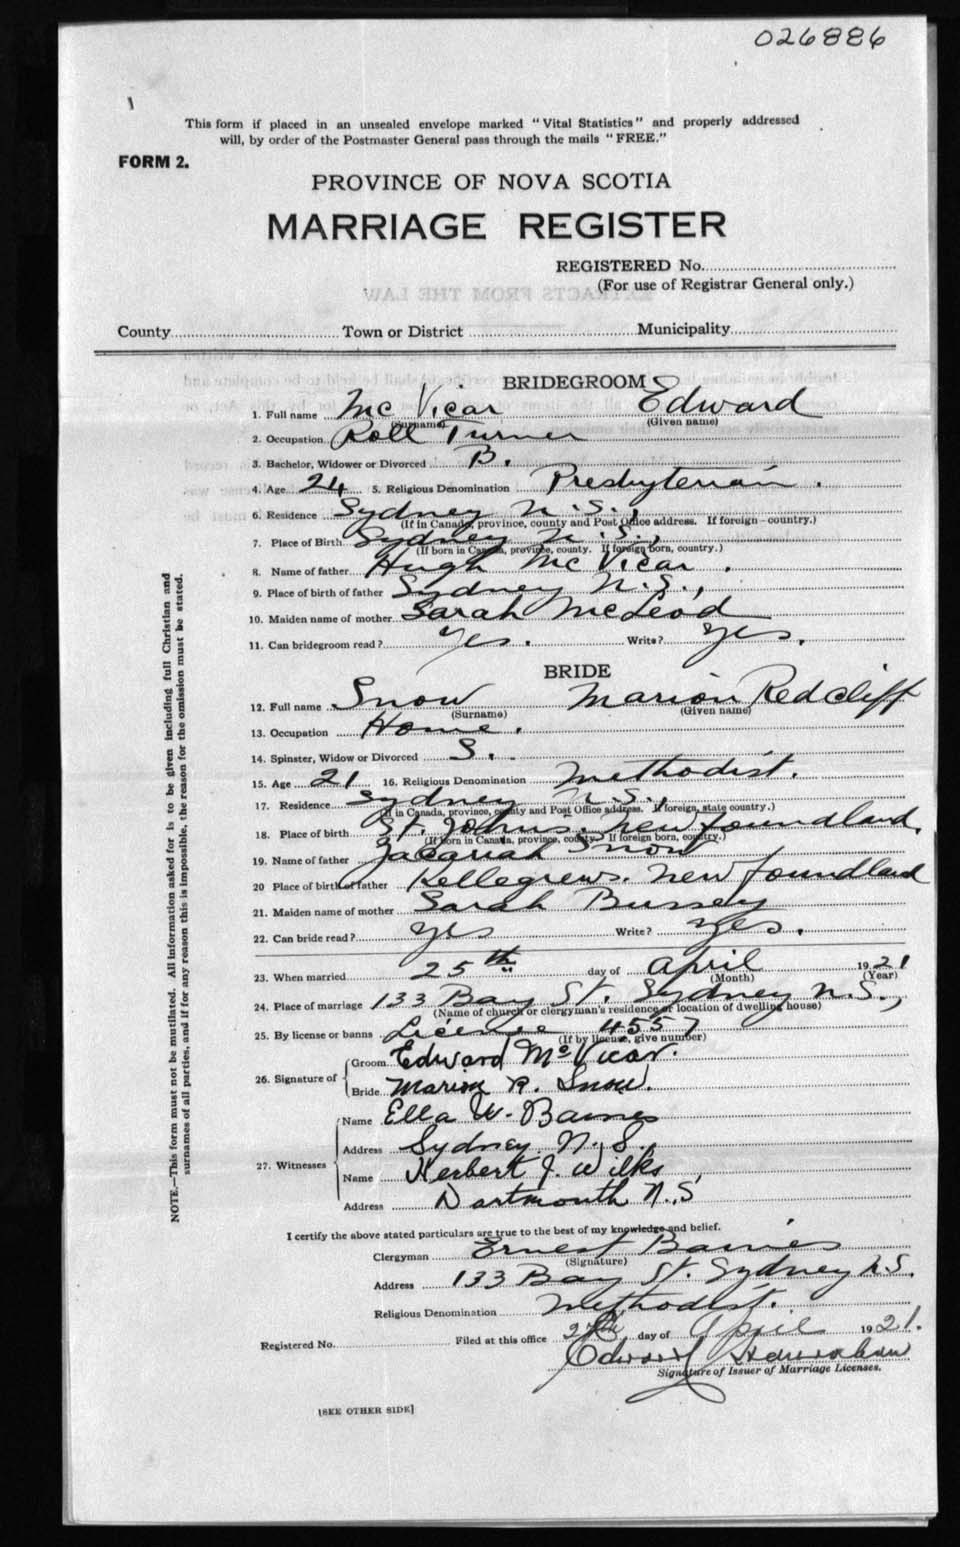 026886
This form if placed in an unsealed envelope marked "Vital Statistics" and properly addressed
will, by order of the Postmaster General pass through the mails "FREE."
FORM 2.
PROVINCE OF NOVA SCOTIA
MARRIAGE REGISTER
REGISTERED No.
(For use of Registrar General only.)
EXTRACTS FROM THE LAW
County Town or District Municipality
BRIDEGROOM
1. Full name McVicar Edward
(Surname) (Given name)
2. Occupation Roll Turner
3. Bachelor, Widower or Divorced B.
4. Age 24 5. Religious Denomination Presbyterian.
6. Residence Sydney N.S.,
(If in Canada, province, county and Post Office address. If foreign—country.)
7. Place of Birth Sydney N.S.,
(If born in Canada, province, county. If foreign born, country.)
8. Name of father Hugh McVicar.
9. Place of birth of father Sydney N.S.,
10. Maiden name of mother Sarah McLeod
11. Can bridegroom read? Yes. Write? Yes.
BRIDE
12. Full name Snow Marion Redcliff
(Surname) (Given name)
13. Occupation Home.
14. Spinster, Widow or Divorced S.
15. Age 21 16. Religious Denomination Methodist.
17. Residence Sydney N.S.,
(If in Canada, province, county and Post Office address. If foreign, state country.)
18. Place of birth St. Johns. Newfoundland.
(If born in Canada, province, county. If foreign born, country.)
19. Name of father Zacariah Snow
20 Place of birth of father Kellegrews. Newfoundland
21. Maiden name of mother Sarah Bussey
22. Can bride read? Yes Write? Yes.
23. When married 25th day of April 1921
(Month) (Year)
24. Place of marriage 133 Bay St. Sydney N.S.,
(Name of church or clergyman's residence or location of dwelling house)
25. By license or banns License 4557
(If by license, give number)
26. Signature of Groom Edward McVicar.
Bride Marion R. Snow.
27. Witnesses Name Ella W. Barnes
Address Sydney N.S.,
Name Herbert J. Wilks,
Address Dartmouth N.S
I certify the above stated particulars are true to the best of my knowledge and belief.
Clergyman Ernest Barnes
(Signature)
Address 133 Bay St. Sydney N.S.
Religious Denomination Methodist.
Registered No. Filed at this office 27th day of April 1921.
Edward
Signature of Issuer of Marriage Licenses.
[SEE OTHER SIDE]
NOTE.—This form must not be mutilated. All information asked for is to be given including full Christian and
surnames of all parties, and if for any reason this is impossible, the reason for the omission must be stated.